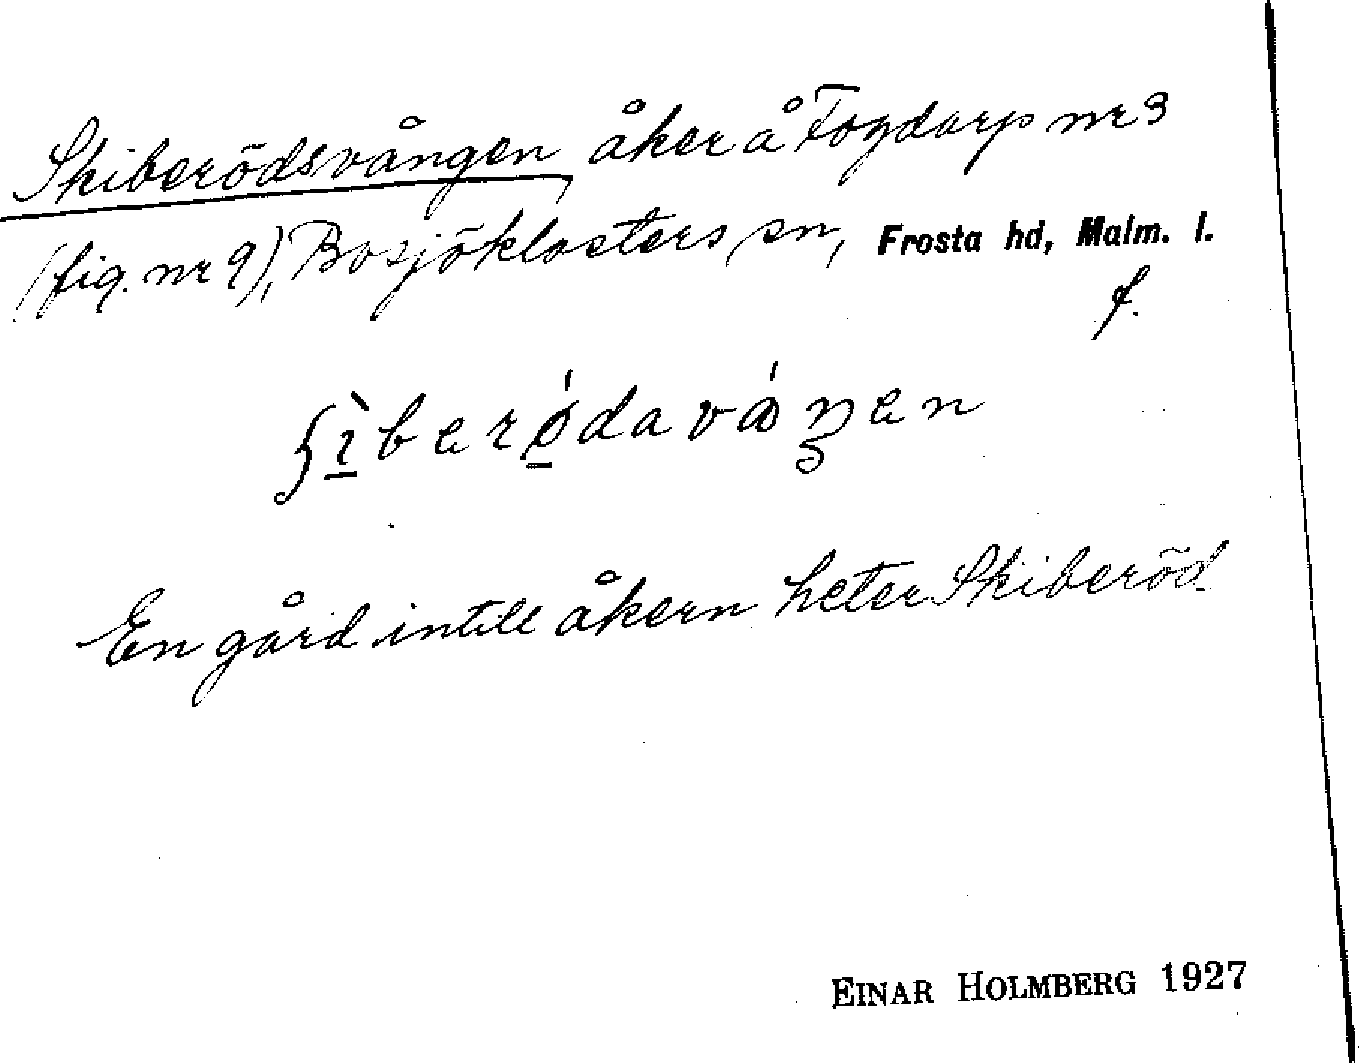 Skiberödsvången, åker å Fogdarp nr 3
(fig. nr 9), Bosjöklosters sn, Frosta hd, Malm. l.
f.
En gård intill åkern heter Skiberöd.
EINAR HOLMBERG 1927